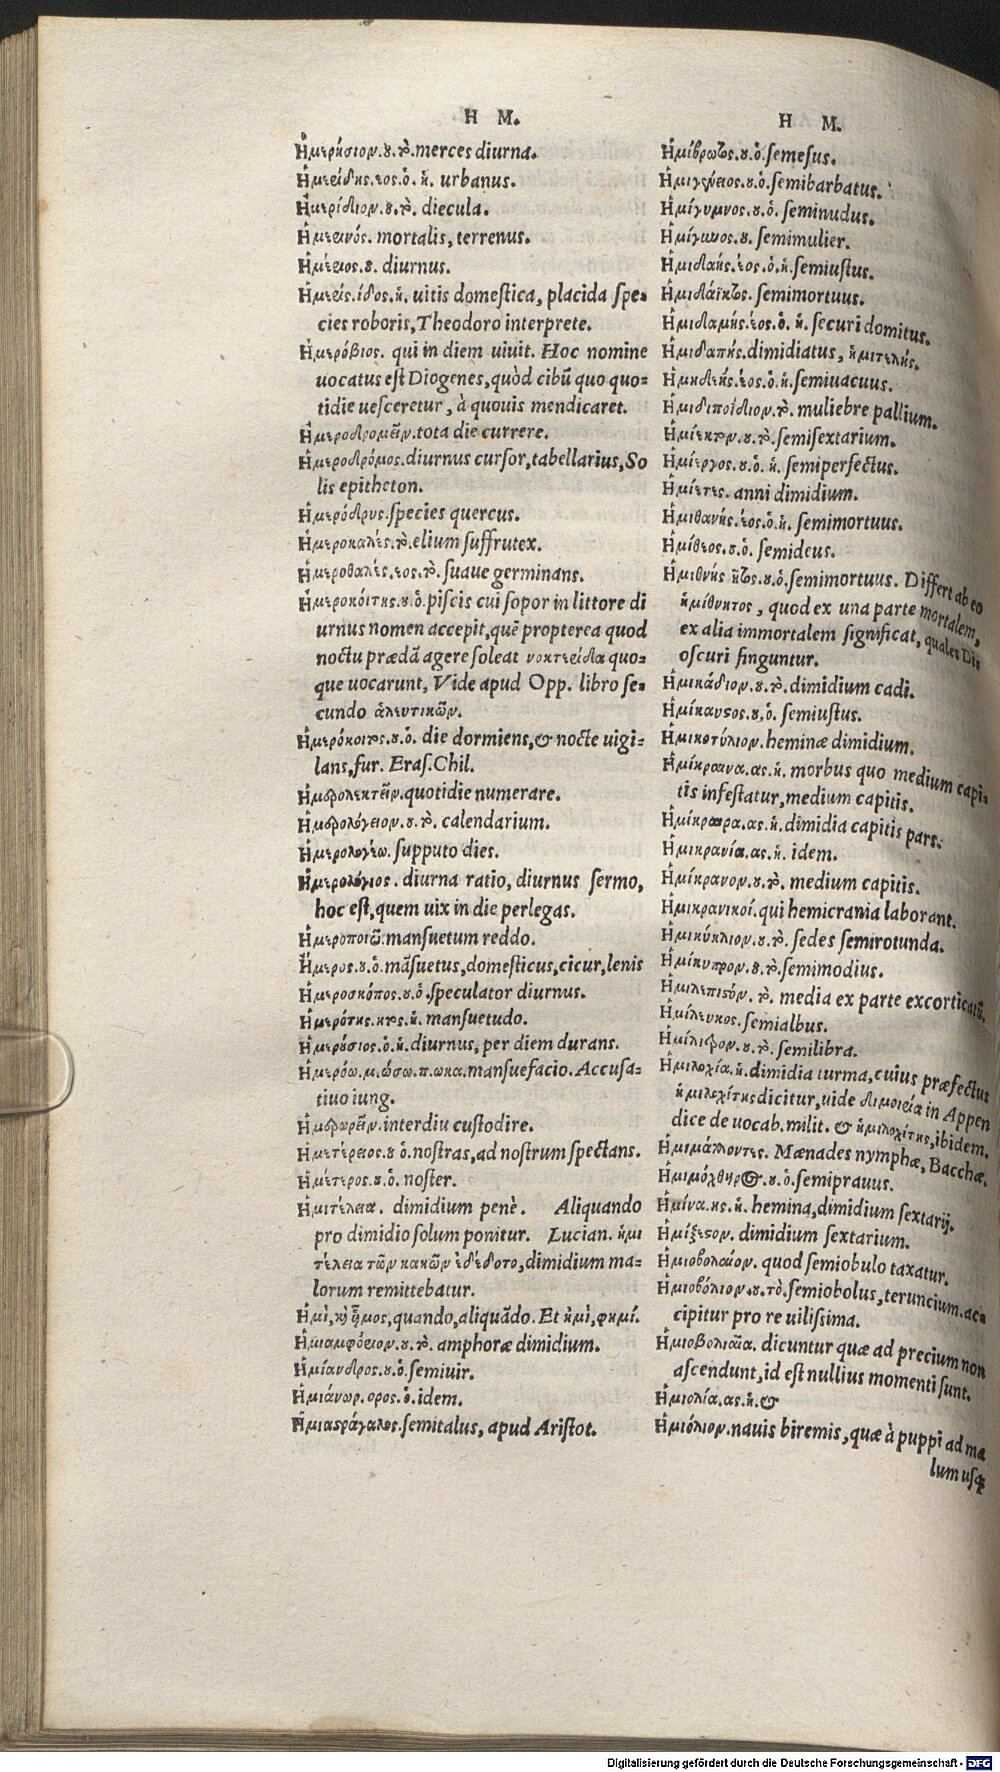 Η Μ.
Ἡμερήσιον.ου.τὸ.merces diurna.
Ἡμερίδης.εος.ὁ.ἡ. urbanus.
Ἡμερίδιον.ου.τὸ. diecula.
Ἡμερινός. mortalis, terrenus.
Ἡμέριος.ου. diurnus.
Ἡμερίς.ίδος.ἡ. uitis domestica, placida spe-
cies roboris, Theodoro interprete.
Ἡμερόβιος. qui in diem uiuit. Hoc nomine
uocatus est Diogenes, quòd cibū quo quo-
tidie uesceretur, à quouis mendicaret.
Ἡμεροδρομεῖν.tota die currere.
Ἡμεροδρόμος.diurnus cursor, tabellarius, So
lis epitheton.
Ἡμερόδρυς.species quercus.
Ἡμεροκαλές.τὸ.elium suffrutex.
Ἡμεροθαλές.εος.τὸ.suaue germinans.
Ἡμεροκοίτης.ου.ὁ.piscis cui sopor in littore di
urnus nomen accepit, quē propterea quod
noctu prædā agere soleat νυκτερίδα quo-
que uocarunt, Vide apud Opp. libro se-
cundo ἁλευτικῶν.
Ἡμερόκοιτος.ου.ὁ. die dormiens, & nocte uigi-
lans, fur. Eras. Chil.
Ἡμερολεκτεῖν.quotidie numerare.
Ἡμερολόγειον.ου.τὸ. calendarium.
Ἡμερολογέω. supputo dies.
Ἡμερολόγιος. diurna ratio, diurnus sermo,
hoc est, quem uix in die perlegas.
Ἡμεροποιῶ.mansuetum reddo.
Ἥμερος.ου.ὁ.māsuetus, domesticus, cicur, lenis
Ἡμεροσκόπος.ου.ὁ.speculator diurnus.
Ἡμερότης.ητος.ἡ. mansuetudo.
Ἡμερούσιος.ὁ.ἡ.diurnus, per diem durans.
Ἡμερόω.μ.ώσω.π.ωκα.mansuefacio. Accusa-
tiuo iung.
Ἡμερωρεῖν.interdiu custodire.
Ἡμετέρειος.ου ὁ.nostras, ad nostrum spectans.
Ἡμέτερος.ου.ὁ. noster.
Ἡμιτέλεια. dimidium penè. Aliquando
pro dimidio solum ponitur. Lucian. ἡμι
τέλεια τῶν κακῶν ἐδέδοτο, dimidium ma-
lorum remittebatur.
Ἠμὶ, καὶ ἦμος, quando, aliquādo. Et ἠμὶ, φημί.
Ἡμιαμφόριον.ου.τὸ. amphoræ dimidium.
Ἡμίανδρος.ου.ὁ.semiuir.
Ἡμιάνωρ.ορος.ὁ.idem.
Ἡμιαστράγαλος.semitalus, apud Aristot.
Η Μ.
Ἡμίβρωτος.ου.ὁ.semesus.
Ἡμιγένειος.ου.ὁ.semibarbatus.
Ἡμίγυμνος.ου.ὁ. seminudus.
Ἡμίγυνος.ου. semimulier.
Ἡμιδαής.έος.ὁ.ἡ.semiustus.
Ἡμιδάϊκτος. semimortuus.
Ἡμιδαμής.έος.ὁ. ἡ. securi domitus.
Ἡμιδαπής.dimidiatus, ἡμιτελής.
Ἡμιδεής.έος.ὁ.ἡ.semiuacuus.
Ἡμιδιπλοΐδιον.τὸ. muliebre pallium.
Ἡμίεκτον.ου.τὸ.semisextarium.
Ἡμίεργος.ου.ὁ.ἡ. semiperfectus.
Ἡμίετες. anni dimidium.
Ἡμιθανής.έος.ὁ.ἡ. semimortuus.
Ἡμίθεος.ου.ὁ. semideus.
Ἡμιθνής ῆτος.ου.ὁ.semimortuus. Differt ab eo
ἡμίθνητος, quod ex una parte mortalem,
ex alia immortalem significat, quales Di-
oscuri finguntur.
Ἡμικάδιον.ου.τὸ.dimidium cadi.
Ἡμίκαυστος.ου.ὁ. semiustus.
Ἡμικοτύλιον.heminæ dimidium.
Ἡμίκραινα.ας.ἡ. morbus quo medium capi-
tis infestatur, medium capitis.
Ἡμίκραιρα.ας.ἡ.dimidia capitis pars.
Ἡμικρανία.ας.ἡ. idem.
Ἡμίκρανον.ου.τὸ. medium capitis.
Ἡμικρανικοί.qui hemicrania laborant.
Ἡμικύκλιον.ου.τὸ. sedes semirotunda.
Ἡμίκυπρον.ου.τὸ.semimodius.
Ἡμιλέπιστον. τὸ. media ex parte excorticatū.
Ἡμίλευκος.semialbus.
Ἡμίλιτρον.ου.τὸ.semilibra.
Ἡμιλοχία.ἡ.dimidia turma, cuius præfectus
ἡμιλοχίτης dicitur, uide διμοιρία in Appen
dice de uocab. milit. & ἡμιλοχίτης, ibidem.
Ἡμιμάλλοντες. Mænades nymphæ, Bacchæ.
Ἡμιμόχθηρος.ου.ὁ.semiprauus.
Ἡμίνα.ης.ἡ. hemina, dimidium sextarij.
Ἡμίξεστον. dimidium sextarium.
Ἡμιοβολαῖον. quod semiobulo taxatur.
Ἡμιοβόλιον.ου.τὸ.semiobolus, teruncium. ac-
cipitur pro re uilissima.
Ἡμιοβολιαῖα. dicuntur quæ ad precium non
ascendunt, id est nullius momenti sunt.
Ἡμιολία.ας.ἡ.&
Ἡμιόλιον.nauis biremis, quæ à puppi ad ma
lum usq;
Digitalisierung gefördert durch die Deutsche Forschungsgemeinschaft - DFG